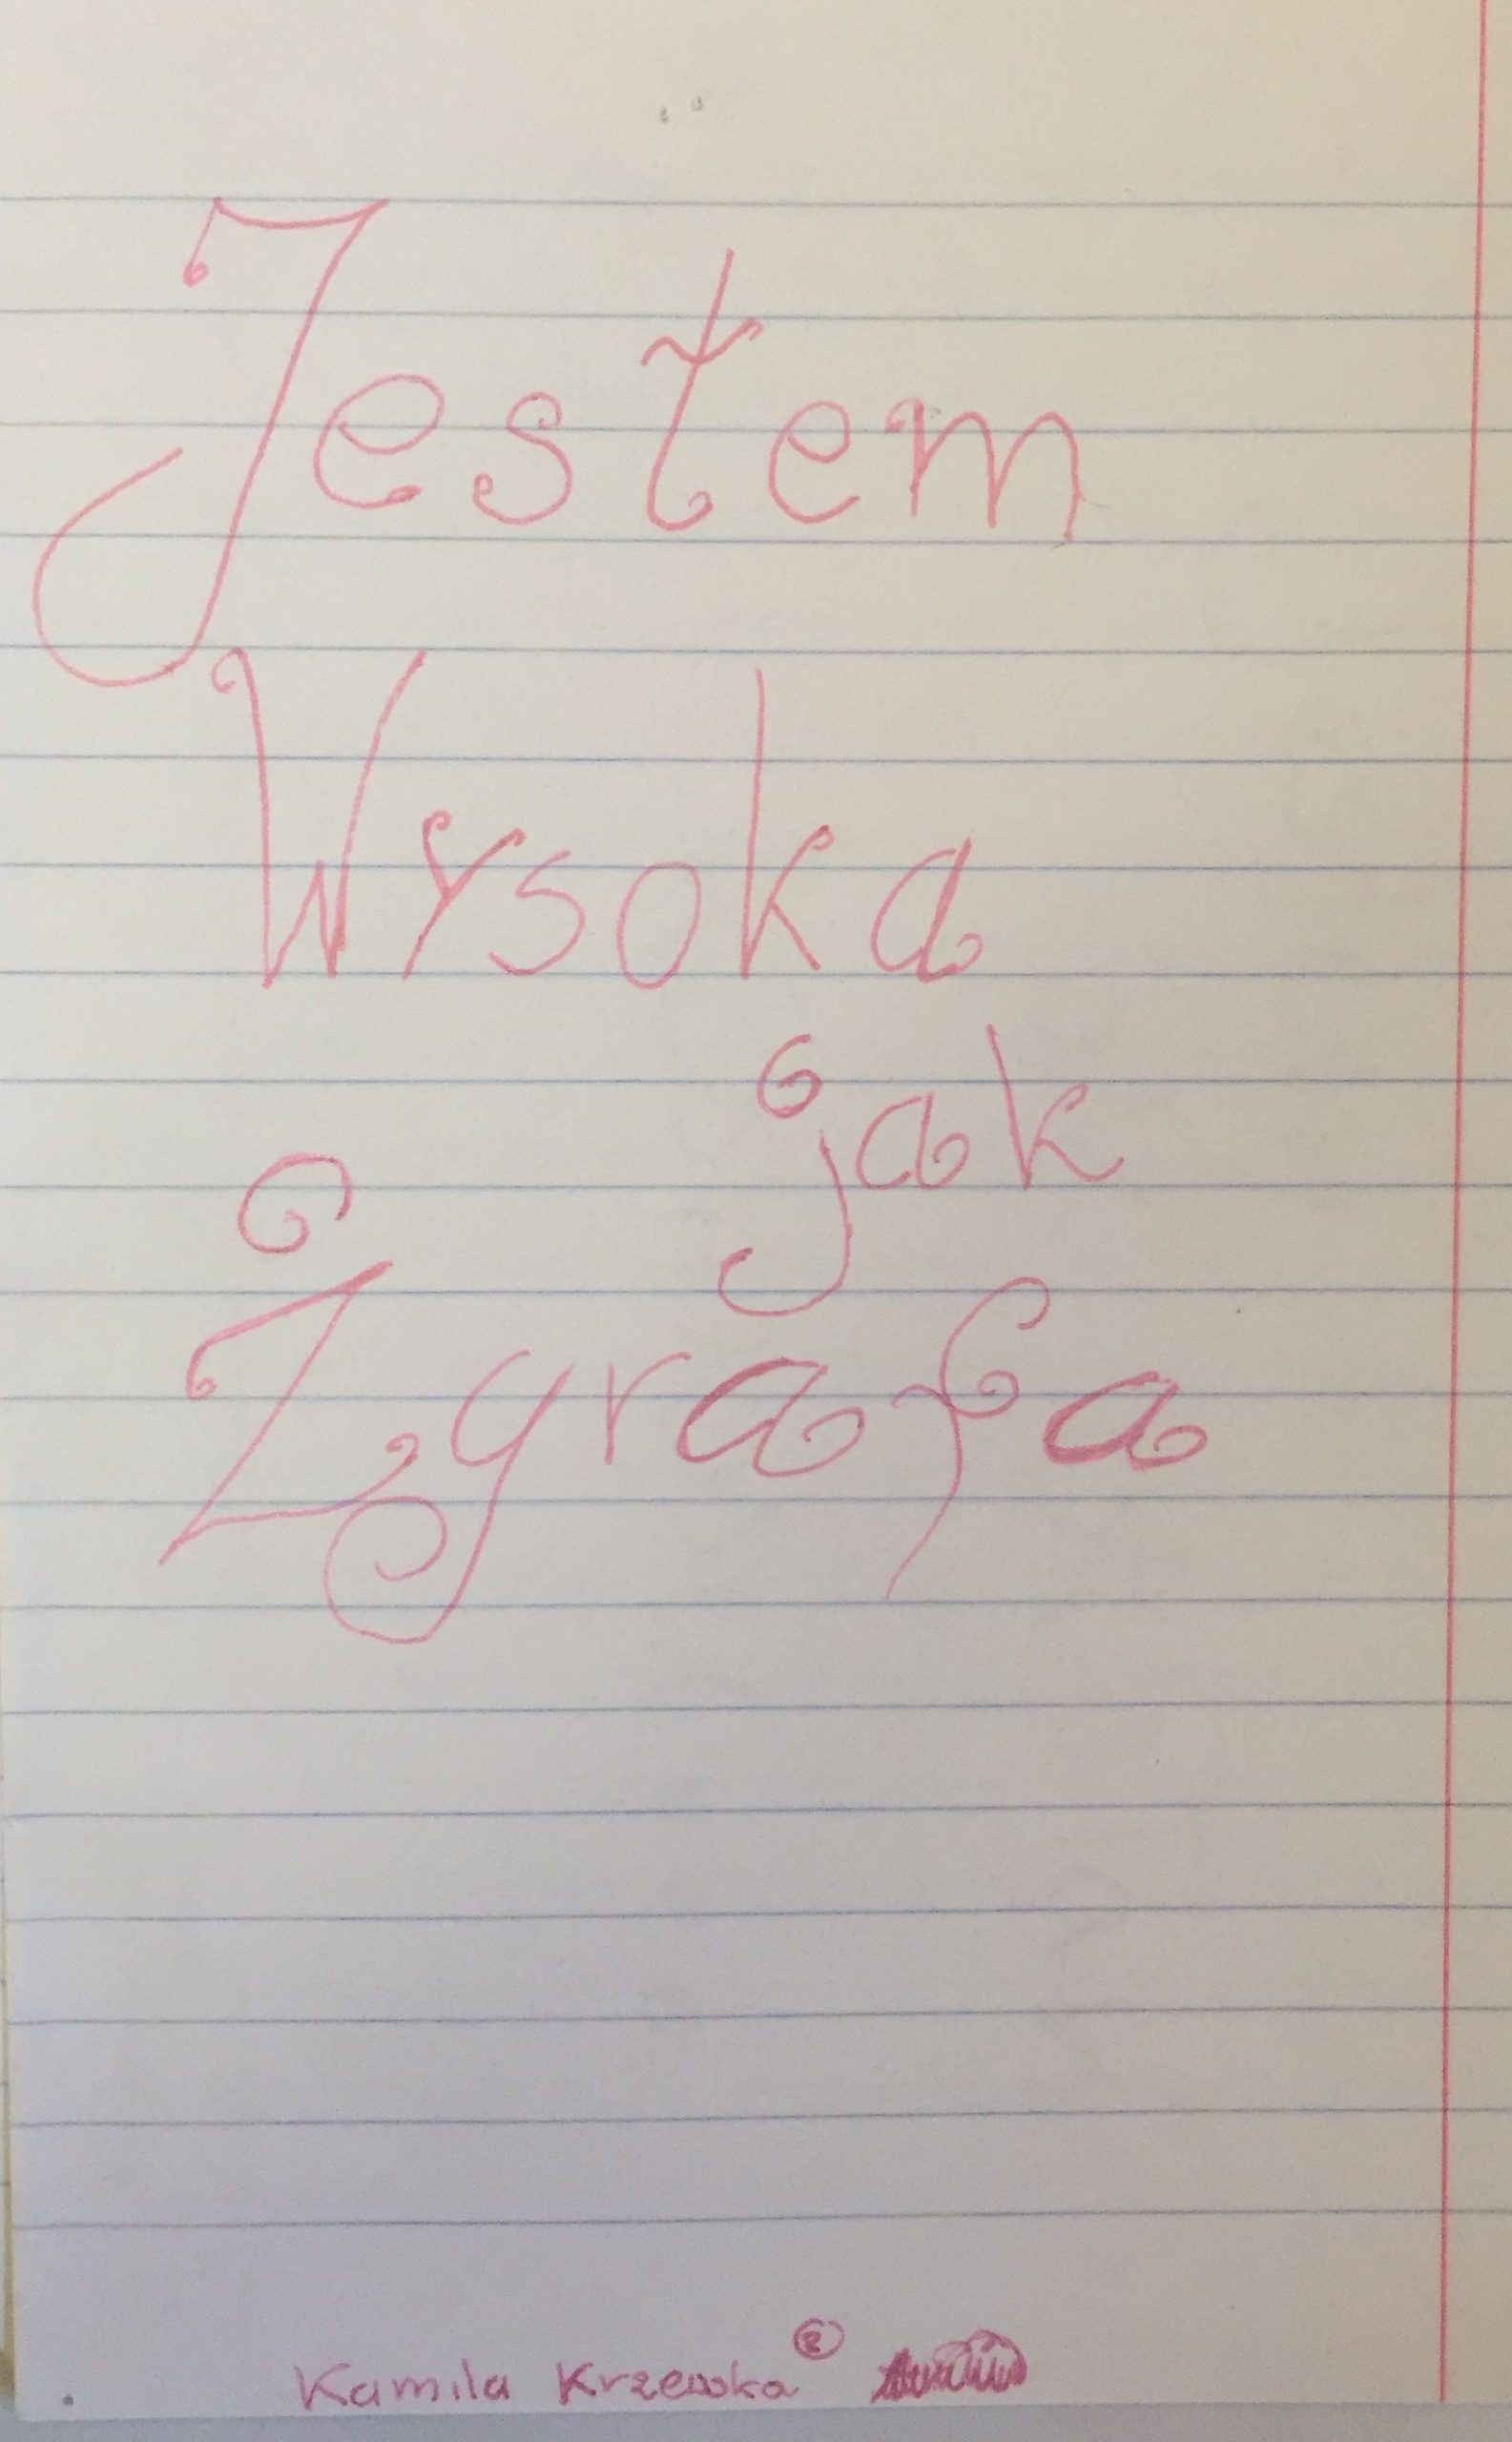 Jestem
Wysoka
jak
Żyrafa
Kamila Krzewka